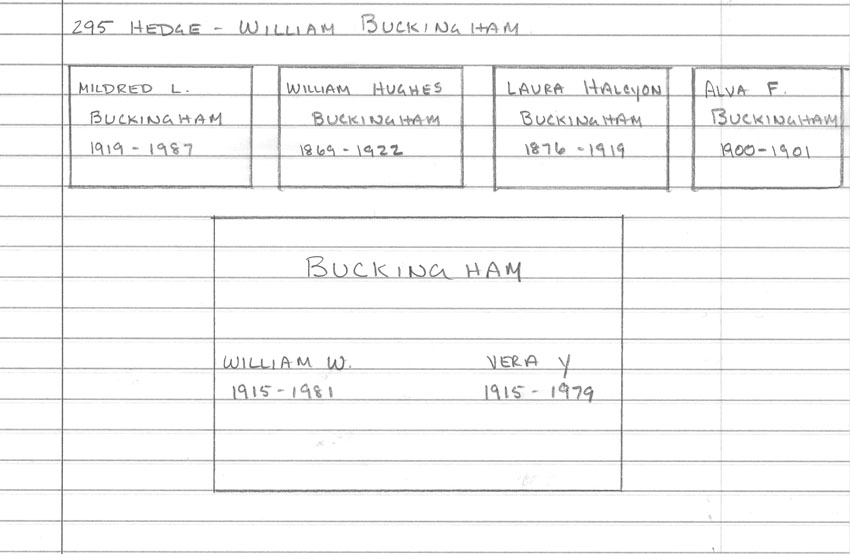 295 HEDGE - WILLIAM BUCKINGHAM
MILDRED L.
BUCKINGHAM
1919 - 1987
WILLIAM HUGHES
BUCKINGHAM
1869 - 1922
LAURA HALCYON
BUCKINGHAM
1876 - 1919
ALVA F.
BUCKINGHAM
1900 - 1901
BUCKINGHAM
WILLIAM W.
1915 - 1981
VERA Y
1915 - 1979